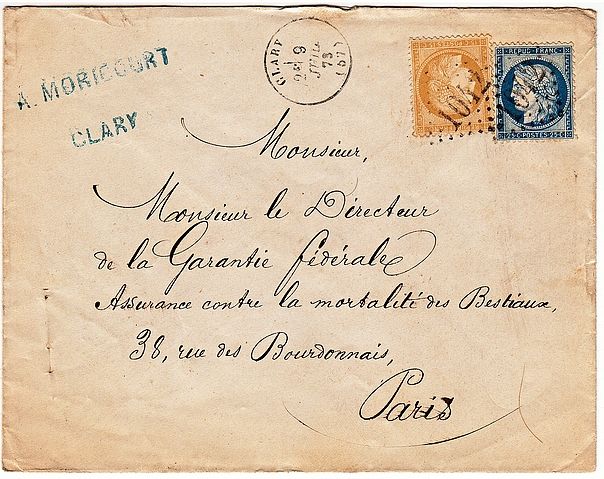 A. MORICOURT
CLARY
CLARY
2E
9
73
(57)
15 C POSTES 15 C
REPUB. FRANC.
25 C POSTES 25 C
1042
Monsieur,
Monsieur le Directeur
de la Garantie fédérale
Assurance contre la mortalité des Bestiaux,
38, rue des Bourdonnais,
Paris